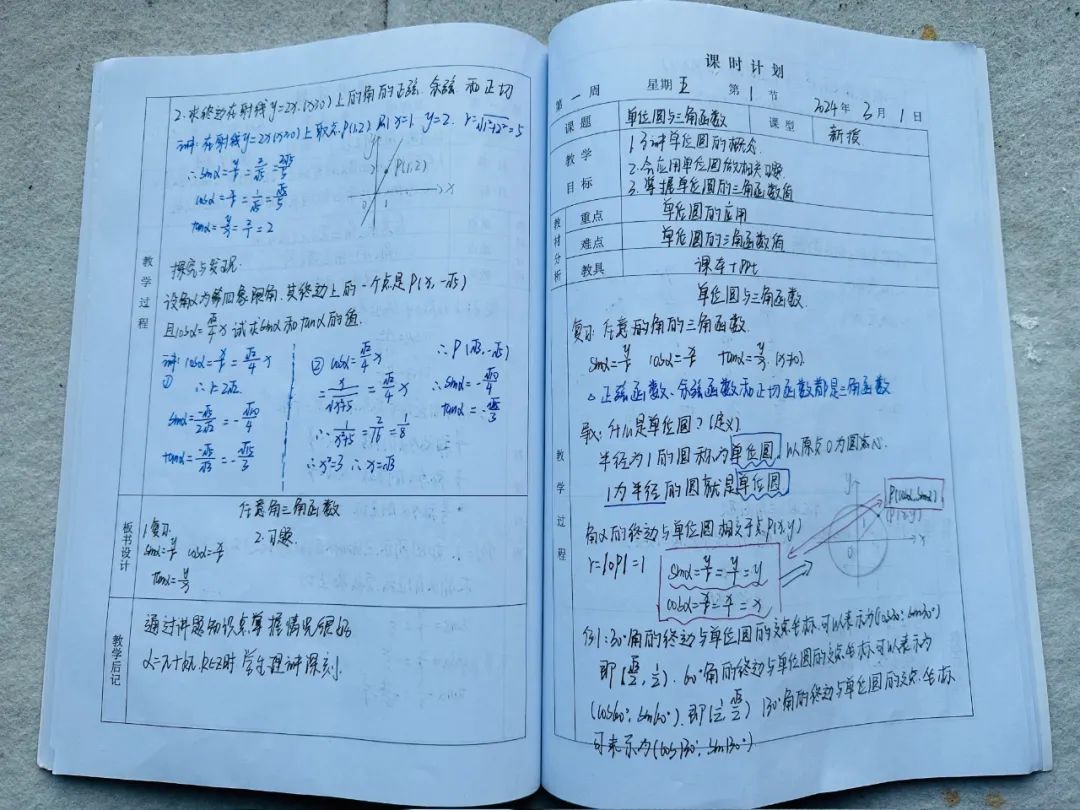 2. 求终边在射线y=2x(x≥0)上的角的正弦、余弦和正切
讲: 在射线y=2x(x≥0)上取点P(1,2) 则x=1 y=2. r=√1²+2²=5
∴sinα=y/r=2/√5=2√5/5
cosα=x/r=1/√5=√5/5
tanα=y/x=2/1=2
y
2
P(1,2)
x
0 1
教学过程
探究与发现.
设角α为第四象限角.其终边上的一个点是P(x,-√5)
且cosα=√2/4 x 试求sinα和tanα的值.
讲: cosα=x/r=√2/4 x
① ∴r=2√2.
sinα=-√5/2√2=-√10/4
tanα=-√5/√3=-√15/3
② cosα=√2/4 x
=x/√x²+5=√2/4 x
∴1/x²+5=2/16=1/8
∴x²=3 ∴x=√3
∴P(√3,-√5)
∴sinα=-√10/4
tanα=-√15/3
板书设计
任意角三角函数
1.复习:
sinα=y/r cosα=x/r
tanα=y/x
2.习题.
教学后记
通过讲题知识点掌握情况很好
学生理讲深刻.
课时计划
第一周 星期五 第1节 2024年3月1日
课题 单位圆与三角函数 课型 新授
教学目标
1.了讲单位圆的概念.
2.会应用单位圆做相关习题.
3.掌握单位圆的三角函数值
教材分析
重点 单位圆的应用
难点 单位圆的三角函数值
教具 课本+PPt
教学过程
单位圆与三角函数.
复习: 任意的角的三角函数.
sinα=y/r cosα=x/r tanα=y/x (x≠0).
△正弦函数、余弦函数和正切函数都是三角函数
导入: 什么是单位圆?(定义)
半径为1的圆称为单位圆.以原点O为圆心.
1为半径的圆就是单位圆
y
P(cosα,sinα)
(P(x,y)
1
0
x
角α的终边与单位圆相交于点P(x,y)
r=|OP|=1
sinα=y/r=y/1=y
cosα=x/r=x/1=x
例1: 30°角的终边与单位圆的交点坐标可以表示为(cos30°,sin30°)
即(√3/2,1/2). 60°角的终边与单位圆的交点坐标可以表示为
(cos60°,sin60°).即(1/2,√3/2) 130°角的终边与单位圆的交点.坐标
可表示为(cos130°,sin130°)